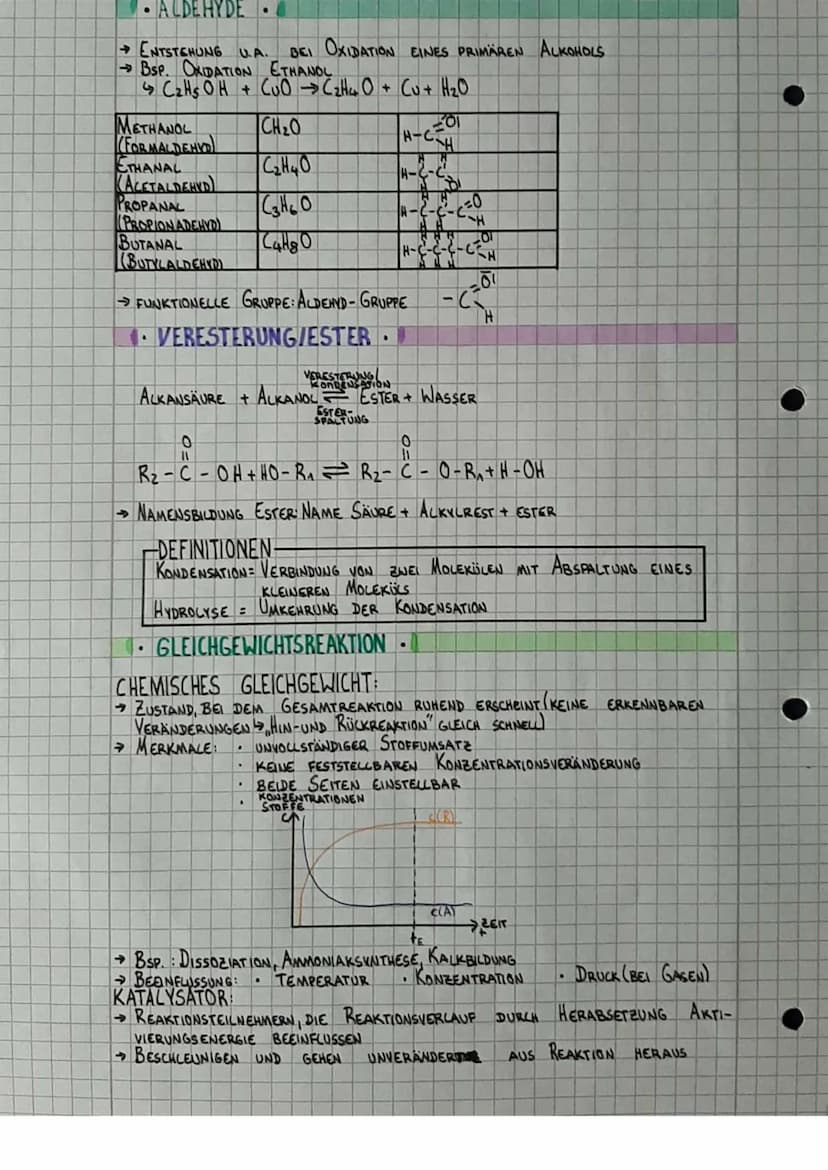 • ALDEHYDE •
→ ENTSTEHUNG U.A. BEI OXIDATION EINES PRIMÄREN ALKOHOLS
→ BSP. OXIDATION ETHANOL
↳ C2H5OH + CuO → C2H4O + Cu + H2O
METHANOL (FORMALDEHYD) CH2O H-C=O| H
ETHANAL (ACETALDEHYD) C2H4O H-C-C
PROPANAL (PROPIONADEHYD) C3H6O H-C-C-C=O H
BUTANAL (BUTYLALDEHYD) C4H8O H-C-C-C-C=O| H
→ FUNKTIONELLE GRUPPE: ALDEHYD-GRUPPE -C=O| H
• VERESTERUNG/ESTER •
VERESTERUNG/
KONDENSATION
ALKANSÄURE + ALKANOL ⇌ ESTER + WASSER
ESTER-
SPALTUNG
O O
|| ||
R2 - C - OH + HO - R1 ⇌ R2 - C - O - R1 + H - OH
→ NAMENSBILDUNG ESTER: NAME SÄURE + ALKYLREST + ESTER
DEFINITIONEN
KONDENSATION = VERBINDUNG VON ZWEI MOLEKÜLEN MIT ABSPALTUNG EINES
KLEINEREN MOLEKÜLS
HYDROLYSE = UMKEHRUNG DER KONDENSATION
• GLEICHGEWICHTSREAKTION •
CHEMISCHES GLEICHGEWICHT:
→ ZUSTAND, BEI DEM GESAMTREAKTION RUHEND ERSCHEINT (KEINE ERKENNBAREN
VERÄNDERUNGEN ↳ „HIN- UND RÜCKREAKTION" GLEICH SCHNELL)
→ MERKMALE: • UNVOLLSTÄNDIGER STOFFUMSATZ
• KEINE FESTSTELLBAREN KONZENTRATIONSVERÄNDERUNG
• BEIDE SEITEN EINSTELLBAR
• KONZENTRATIONEN
STOFFE
C
c(R)
c(A)
ZEIT
t
tE
→ BSP.: DISSOZIATION, AMMONIAKSYNTHESE, KALKBILDUNG
→ BEEINFLUSSUNG: • TEMPERATUR • KONZENTRATION • DRUCK (BEI GASEN)
KATALYSATOR:
→ REAKTIONSTEILNEHMERN, DIE REAKTIONSVERLAUF DURCH HERABSETZUNG AKTI-
VIERUNGSENERGIE BEEINFLUSSEN
→ BESCHLEUNIGEN UND GEHEN UNVERÄNDERT AUS REAKTION HERAUS